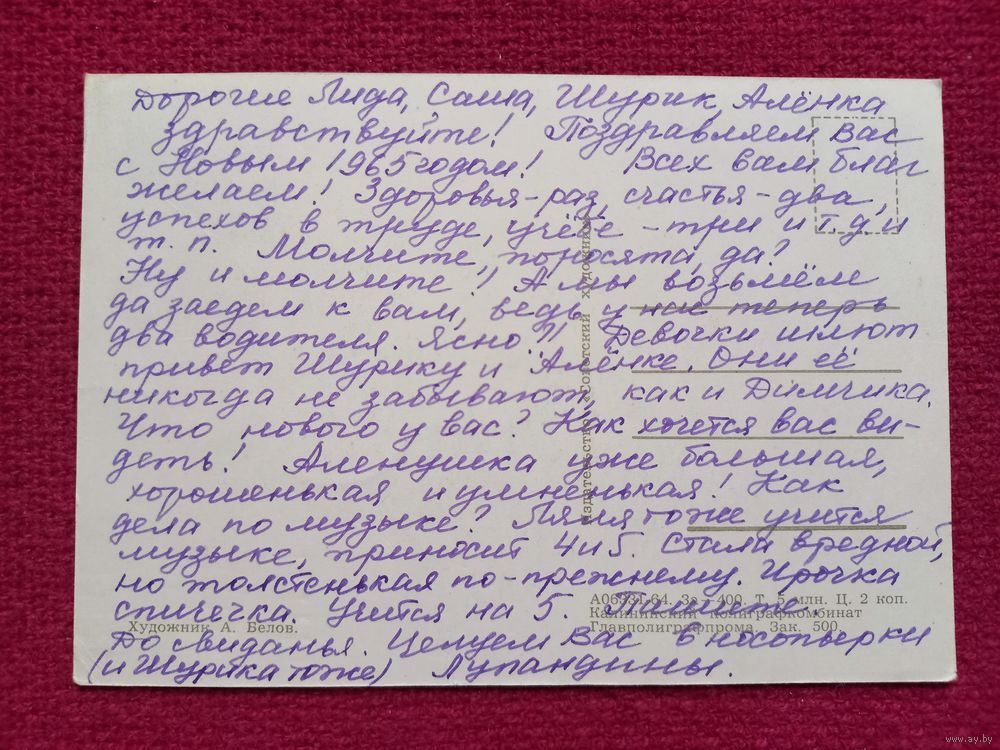 Дорогие Лида, Саша, Шурик, Алёнка
здравствуйте! Поздравляем Вас
с Новым 1965 годом! Всех вам благ
желаем! Здоровья-раз, счастья-два,
успехов в труде, учёбе -три и т.д. и
т.п. Молчите, поросята, да?
Ну и молчите! А мы возьмём
да заедем к вам, ведь у нас теперь
два водителя. Ясно?! Девочки шлют
привет Шурику и Алёнке. Они её
никогда не забывают, как и Димчика.
Что нового у вас? Как хочется вас ви-
деть! Аленушка уже большая,
хорошенькая и умненькая! Как
дела по музыке? Ляля тоже учится
музыке, приносит 4 и 5. Стала вредной,
но толстенькая по-прежнему. Ирочка
спичечка. Учится на 5. Пишите.
До свиданья. Целуем Вас в носопырки
(и Шурика тоже) Лупандины.
Художник А. Белов.
Издательство «Советский художник»
А06931-64. За -400. Т. 5 млн. Ц. 2 коп.
Калининский полиграфкомбинат
Главполиграфпрома. Зак. 500
www.ay.by